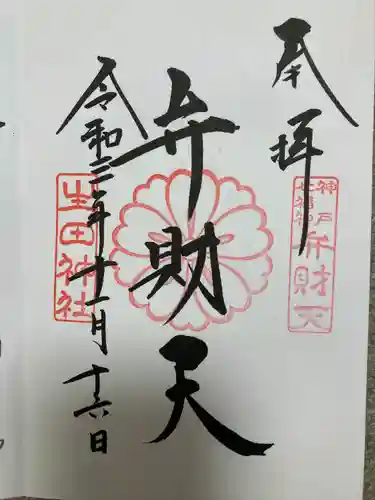 奉拝
神戸七福神
弁財天
弁財天
生田神社
令和三年十一月十六日